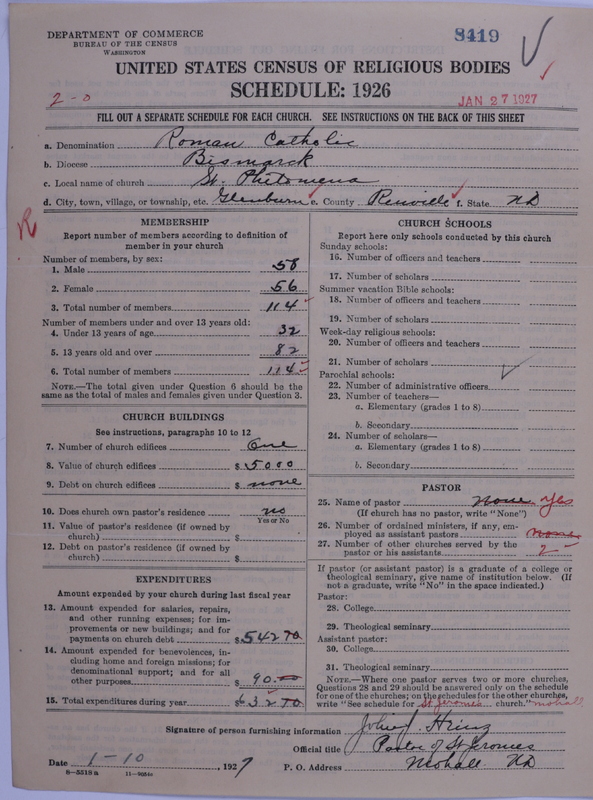 DEPARTMENT OF COMMERCE
BUREAU OF THE CENSUS
WASHINGTON
8419
UNITED STATES CENSUS OF RELIGIOUS BODIES
SCHEDULE: 1926
2-0
JAN 27 1927
FILL OUT A SEPARATE SCHEDULE FOR EACH CHURCH. SEE INSTRUCTIONS ON THE BACK OF THIS SHEET
a. Denomination Roman Catholic
b. Diocese Bismarck
c. Local name of church St. Philomena
d. City, town, village, or township, etc. Glenburn e. County Renville f. State ND
R
MEMBERSHIP
Report number of members according to definition of
member in your church
Number of members, by sex:
1. Male 58
2. Female 56
3. Total number of members 114
Number of members under and over 13 years old:
4. Under 13 years of age 32
5. 13 years old and over 82
6. Total number of members 114
NOTE.—The total given under Question 6 should be the
same as the total of males and females given under Question 3.
CHURCH BUILDINGS
See instructions, paragraphs 10 to 12
7. Number of church edifices One
8. Value of church edifices $ 5000
9. Debt on church edifices $ none
10. Does church own pastor's residence no
Yes or No
11. Value of pastor's residence (if owned by
church) $
12. Debt on pastor's residence (if owned by
church) $
EXPENDITURES
Amount expended by your church during last fiscal year
13. Amount expended for salaries, repairs,
and other running expenses; for im-
provements or new buildings; and for
payments on church debt $ 542 70
14. Amount expended for benevolences, in-
cluding home and foreign missions; for
denominational support; and for all
other purposes $ 90.00
15. Total expenditures during year $ 632 70
CHURCH SCHOOLS
Report here only schools conducted by this church
Sunday schools:
16. Number of officers and teachers
17. Number of scholars
Summer vacation Bible schools:
18. Number of officers and teachers
19. Number of scholars
Week-day religious schools:
20. Number of officers and teachers
21. Number of scholars
Parochial schools:
22. Number of administrative officers
23. Number of teachers—
a. Elementary (grades 1 to 8)
b. Secondary
24. Number of scholars—
a. Elementary (grades 1 to 8)
b. Secondary
PASTOR
25. Name of pastor None. Yes
(If church has no pastor, write "None")
26. Number of ordained ministers, if any, em-
ployed as assistant pastors none
27. Number of other churches served by the
pastor or his assistants 2
If pastor (or assistant pastor) is a graduate of a college or
theological seminary, give name of institution below. (If
not a graduate, write "No" in the space indicated.)
Pastor:
28. College
29. Theological seminary
Assistant pastor:
30. College
31. Theological seminary
NOTE.—Where one pastor serves two or more churches,
Questions 28 and 29 should be answered only on the schedule
for one of the churches; on the schedules for the other churches,
write "See schedule for St Jerome's church." mohall
Signature of person furnishing information John J. Heinz
Official title Pastor of St Jeromes
Date 1-10 1927 P. O. Address Mohall ND
8-5518 a